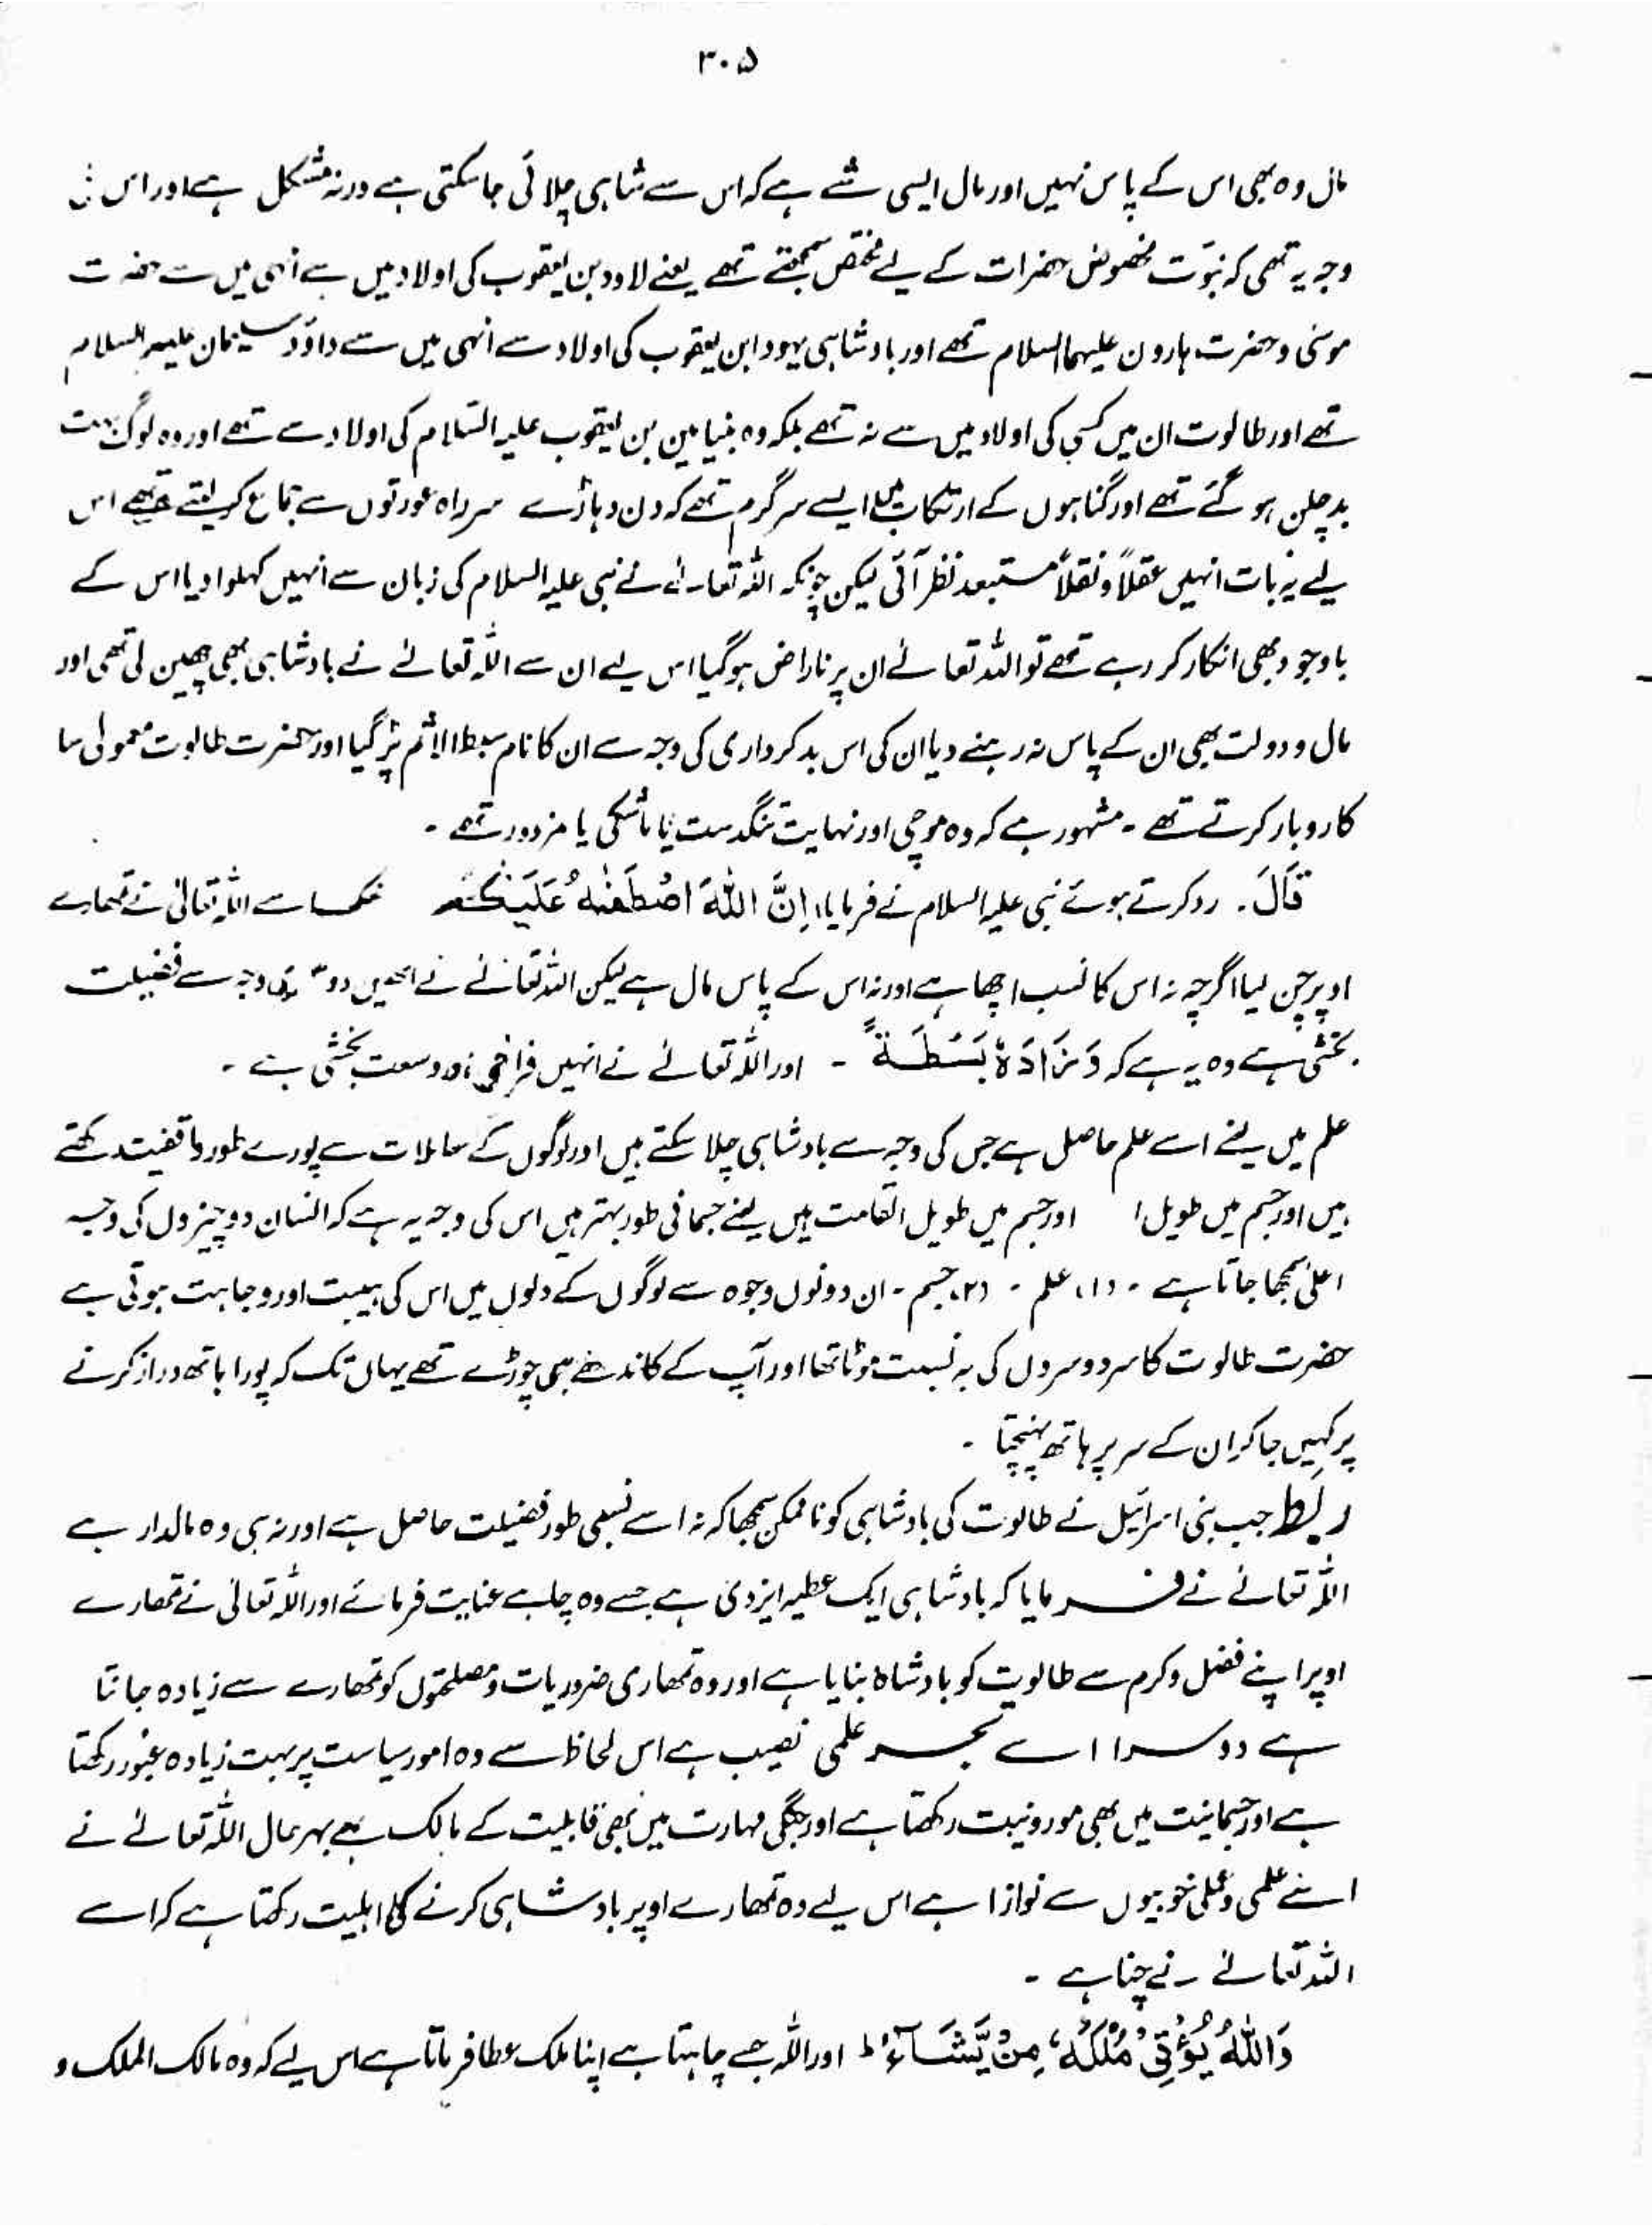 ۳۰۵
مال وہ بھی اس کے پاس نہیں اور مال ایسی شے ہے کہ اس سے شاہی چلائی جا سکتی ہے ورنہ مشکل ہے اور اس
وجہ یہ تھی کہ نبوّت مخصوص حضرات کے لیے مختص سمجھتے تھے یعنے لاود بن یعقوب کی اولاد میں سے انہی میں سے حضرت
موسیٰ و حضرت ہارون علیہما السلام تھے اور بادشاہی یہود ابن یعقوب کی اولاد سے انہی میں سے داؤد سلیمان علیہم السلام
تھے اور طالوت ان میں کسی کی اولاد میں سے نہ تھے بلکہ وہ بنیامین بن یعقوب علیہ السّلام کی اولاد سے تھے اور وہ لوگ بہت
بدچلن ہو گئے تھے اور گناہوں کے ارتکاب میں ایسے سرگرم تھے کہ دن دہاڑے سرراہ عورتوں سے جماع کر لیتے تھے اس
لیے یہ بات انہیں عقلاً و نقلاً مستبعد نظر آئی لیکن چونکہ اللہ تعالےٰ نے نبی علیہ السلام کی زبان سے انہیں کہلوا دیا اس کے
باوجود بھی انکار کر رہے تھے تو اللہ تعالےٰ ان پر ناراض ہو گیا اس لیے ان سے اللہ تعالےٰ نے بادشاہی بھی چھین لی تھی اور
مال و دولت بھی ان کے پاس نہ رہنے دیا ان کی اس بدکرداری کی وجہ سے ان کا نام سبط الاثم پڑ گیا اور حضرت طالوت معمولی سا
کاروبار کرتے تھے ۔ مشہور ہے کہ وہ موچی اور نہایت تنگدست یا ماشکی یا مزدور تھے ۔
قَالَ ۔ رد کرتے ہوئے نبی علیہ السلام نے فرمایا، اِنَّ اللّٰہَ اصْطَفٰىہُ عَلَیْکُمْ سے اللہ تعالیٰ نے تمھارے
اوپر چن لیا اگرچہ نہ اس کا نسب اچھا ہے اور نہ اس کے پاس مال ہے لیکن اللہ تعالےٰ نے انھیں دوسری وجہ سے فضیلت
بخشی ہے وہ یہ ہے کہ وَزَادَہٗ بَسْطَۃً ۔ اور اللہ تعالےٰ نے انہیں فراخی اور وسعت بخشی ہے ۔
علم میں یعنے اسے علم حاصل ہے جس کی وجہ سے بادشاہی چلا سکتے ہیں اور لوگوں کے معاملات سے پورے طور واقفیت رکھتے
ہیں اور جسم میں طویل ا اور جسم میں طویل القامت ہیں یعنے جسمانی طور بہتر ہیں اس کی وجہ یہ ہے کہ انسان دو چیزوں کی وجہ
اعلیٰ سمجھا جاتا ہے ۔ (۱) علم ۔ (۲) جسم ۔ ان دونوں وجوہ سے لوگوں کے دلوں میں اس کی ہیبت اور وجاہت ہوتی ہے
حضرت طالوت کا سر دوسروں کی بہ نسبت موٹا تھا اور آپ کے کاندھے بھی چوڑے تھے یہاں تک کہ پورا ہاتھ دراز کرنے
پر کہیں جا کر ان کے سر پر ہاتھ پہنچتا ۔
ربط جب بنی اسرائیل نے طالوت کی بادشاہی کو ناممکن سمجھا کہ نہ اسے نسبی طور فضیلت حاصل ہے اور نہ ہی وہ مالدار ہے
اللہ تعالےٰ نے فرمایا کہ بادشاہی ایک عطیہ ایزدی ہے جسے وہ چاہے عنایت فرمائے اور اللہ تعالیٰ نے تمھارے
اوپر اپنے فضل و کرم سے طالوت کو بادشاہ بنایا ہے اور وہ تمھاری ضروریات و مصلحتوں کو تمھارے سے زیادہ جانتا
ہے دوسرا اسے تبحر علمی نصیب ہے اس لحاظ سے وہ امور سیاست پر بہت زیادہ عبور رکھتا
ہے اور جسمانیت میں بھی موزونیت رکھتا ہے اور جنگی مہارت میں بھی قابلیت کے مالک ہے بہرحال اللہ تعالےٰ نے
اسے علمی و عملی خوبیوں سے نوازا ہے اس لیے وہ تمھارے اوپر بادشاہی کرنے کی اہلیت رکھتا ہے کہ اسے
اللہ تعالےٰ نے چنا ہے ۔
وَاللّٰہُ یُؤْتِیْ مُلْکَہٗ مَنْ یَّشَآءُ ط اور اللہ جسے چاہتا ہے اپنا ملک عطا فرماتا ہے اس لیے کہ وہ مالک الملک و